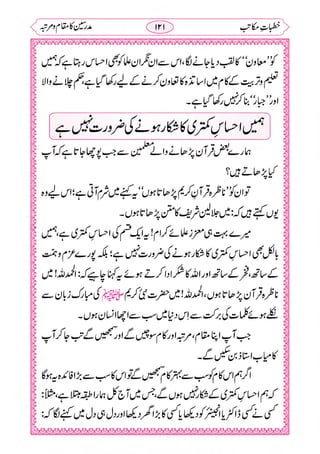 خطباتِ مکاتب
۱۴۱
مدرسین کا مقام و مرتبہ
کو ”معاون“ کا لقب دیا جانے لگا، اس سے ان نگران علما کو بھی احساس رہتا ہے کہ ہمیں
تعلیم و تربیت کے کام میں اساتذہ کا تعاون کرنے کے لیے رکھا گیا ہے، حکم چلانے والا
اور ”جبار“ بنا کر نہیں رکھا گیا ہے۔
ہمیں احساسِ کمتری کا شکار ہونے کی ضرورت نہیں ہے
ہمارے بعض قرآن پڑھانے والے معلمین سے جب پوچھا جاتا ہے کہ آپ
کیا پڑھاتے ہیں؟
تو ان کو ”ناظرہ قرآنِ کریم پڑھاتا ہوں“ یہ کہنے میں شرم آتی ہے؛ اس لیے وہ
یوں کہتے ہیں کہ: میں جلالین شریف کا متن پڑھاتا ہوں۔
میرے بہت ہی معزز علمائے کرام! یہ ایک قسم کی احساسِ کمتری ہے، ہمیں
بالکل بھی احساسِ کمتری کا شکار ہونے کی ضرورت نہیں ہے؛ بلکہ پورے عزم و ہمت
کے ساتھ، فخر کے ساتھ اور اللہ کا شکر ادا کرتے ہوئے یہ کہنا چاہیے کہ: الحمدللہ! میں
ناظرہ قرآن پڑھاتا ہوں، الحمدللہ! میں حضرت نبیٔ کریم ﷺ کی مبارک زبان سے
نکلے ہوئے کلمات کی برکت سے اس دنیا میں سب سے اچھا انسان ہوں۔
جب آپ اپنا مقام، مرتبہ اور کام سوچیں گے اور سمجھیں گے تب جا کر آپ
کامیاب استاذ بن سکیں گے۔
اگر ہم اس کام کو سب سے بہتر کام سمجھیں گے تو اس کا سب سے بڑا فائدہ یہ ہوگا
کہ ہم احساسِ کمتری کے شکار نہیں ہوں گے، جس میں آج کل ہمارا طبقہ مبتلا ہے، مثلاً:
کسی نے کسی ڈاکٹر یا انجینئر کو دیکھا یا کسی کا بڑا گھر دیکھا اور دل ہی دل میں کہنے لگا کہ: